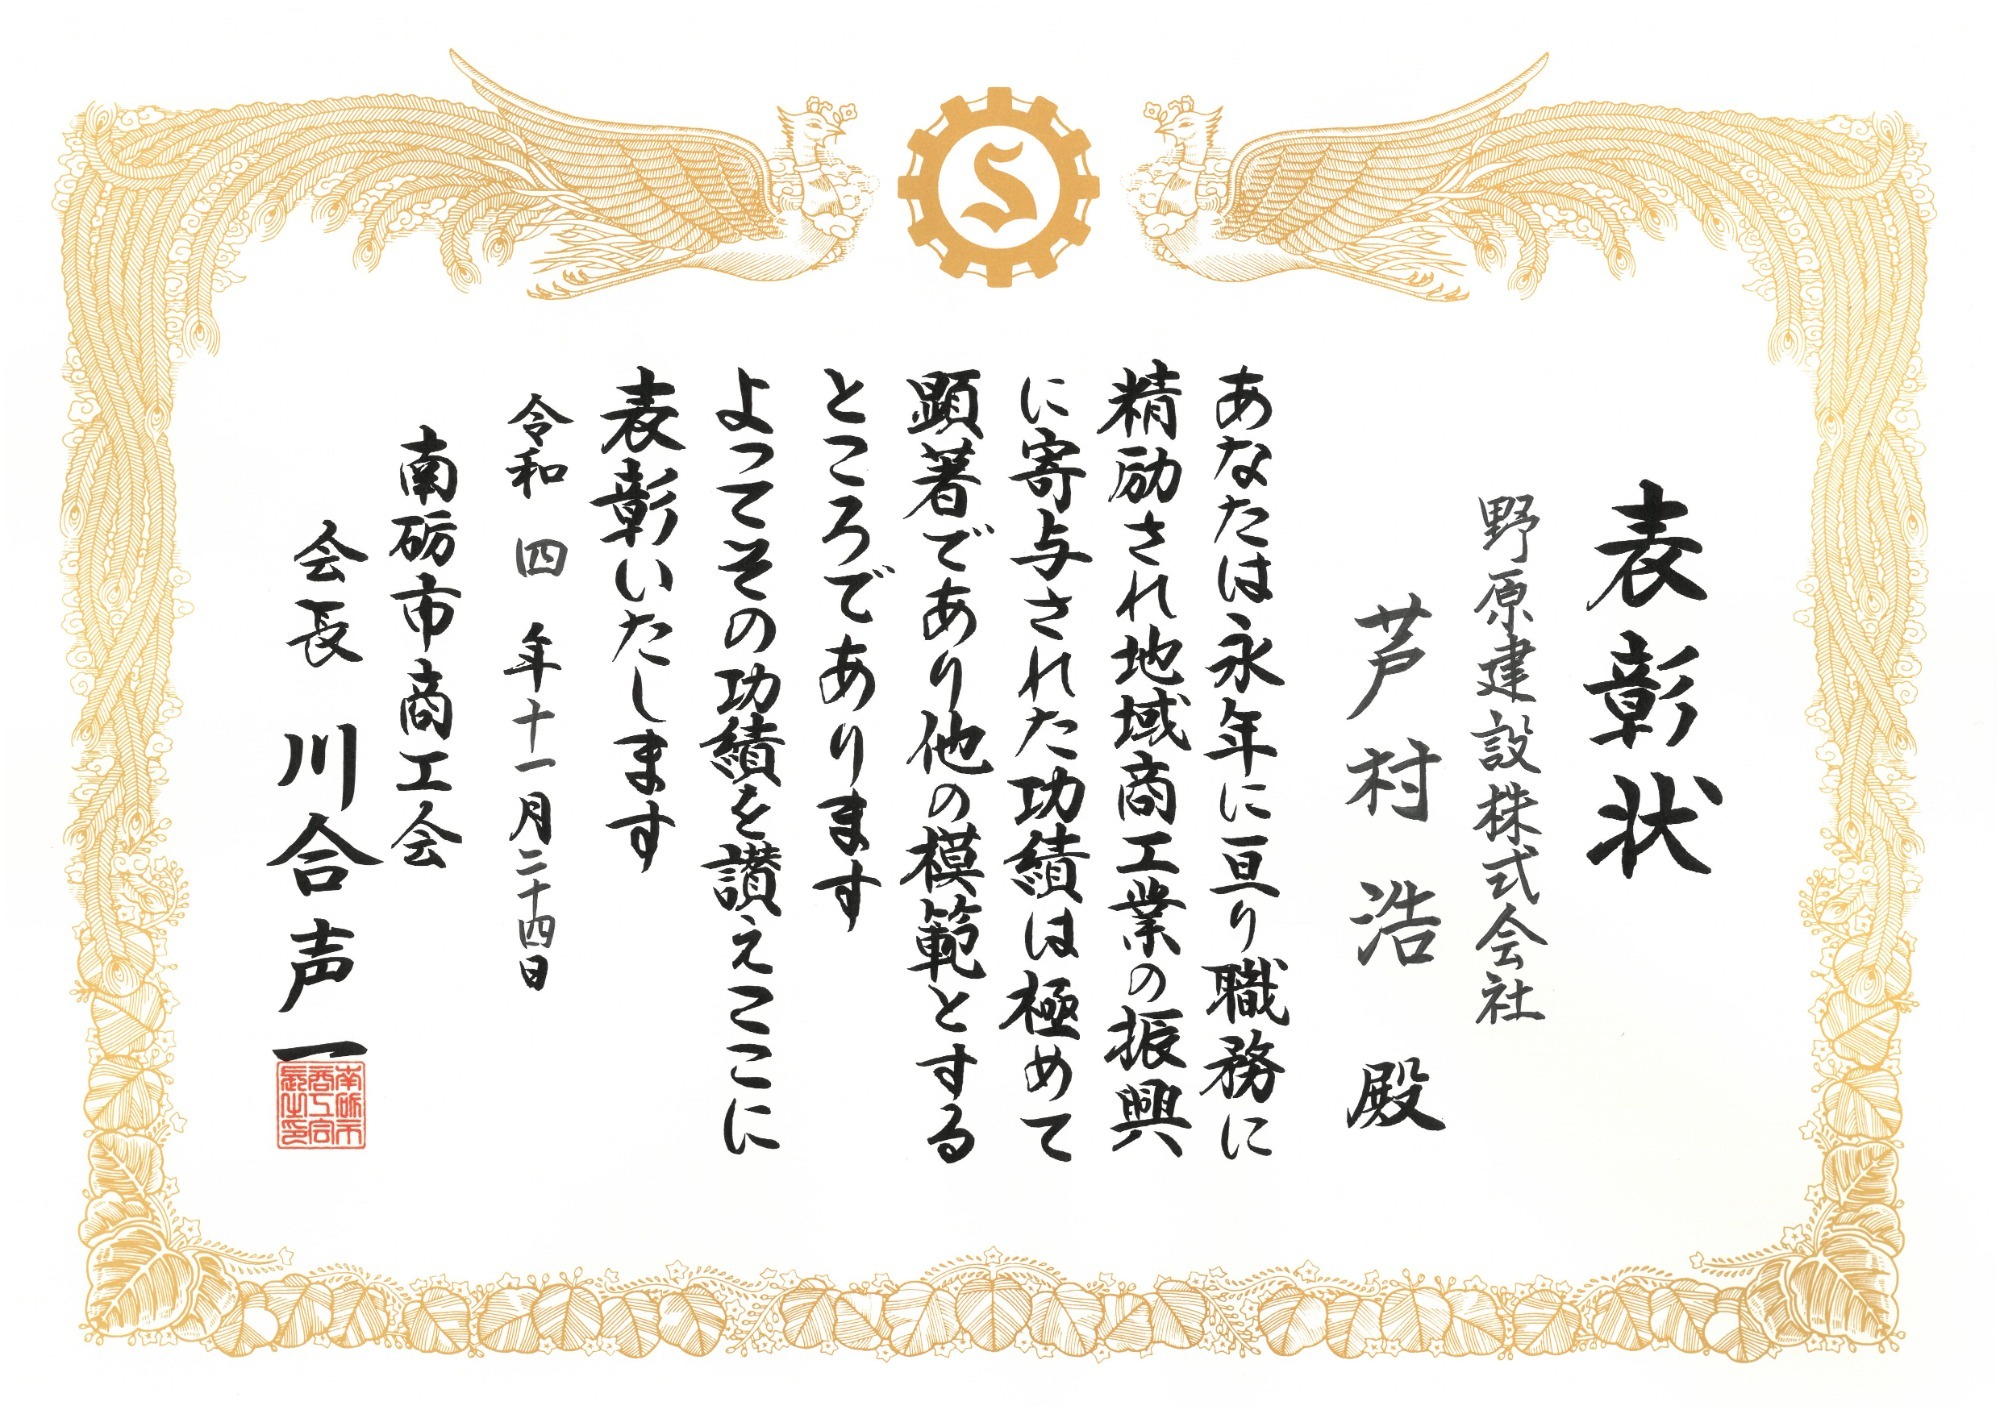 表彰状
野原建設株式会社
芦村浩 殿
あなたは永年に亘り職務に
精励され地域商工業の振興
に寄与された功績は極めて
顕著であり他の模範とする
ところであります
よってその功績を讃えここに
表彰いたします
令和四年十一月二十四日
南砺市商工会
会長 川合声一
南砺市
商工会
長之印
S